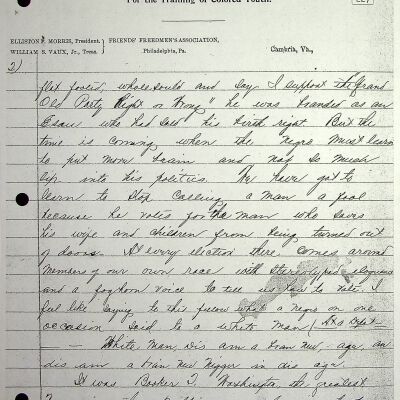 For the Training of Colored Youth.
ELLISTON P. MORRIS, President.
WILLIAM S. VAUX, Jr., Treas.
FRIENDS' FREEDMEN'S ASSOCIATION,
Philadelphia, Pa.
Cambria, Va.,
2)
flat footed, wholesould and say I support the Grand
Old Party Right or Wrong" he was branded as an
Esau who had sold his birth right. But the
time is coming when the negro must learn
to put more brain and not so much
lip into his politics. We have got to
learn to stop calling a man a fool
because he votes for the man who saves
his wife and children from being turned out
of doors. At every election there comes around
members of our own race with stereotyped eloquence
and a foghorn voice to tell us how to vote. I
feel like saying to this fellow what a negro on one
occasion said to a white man
White Man, dis am a bran new age, an
dis am a bran new Nigger in dis age.
It was Booker T. Washington, the greatest